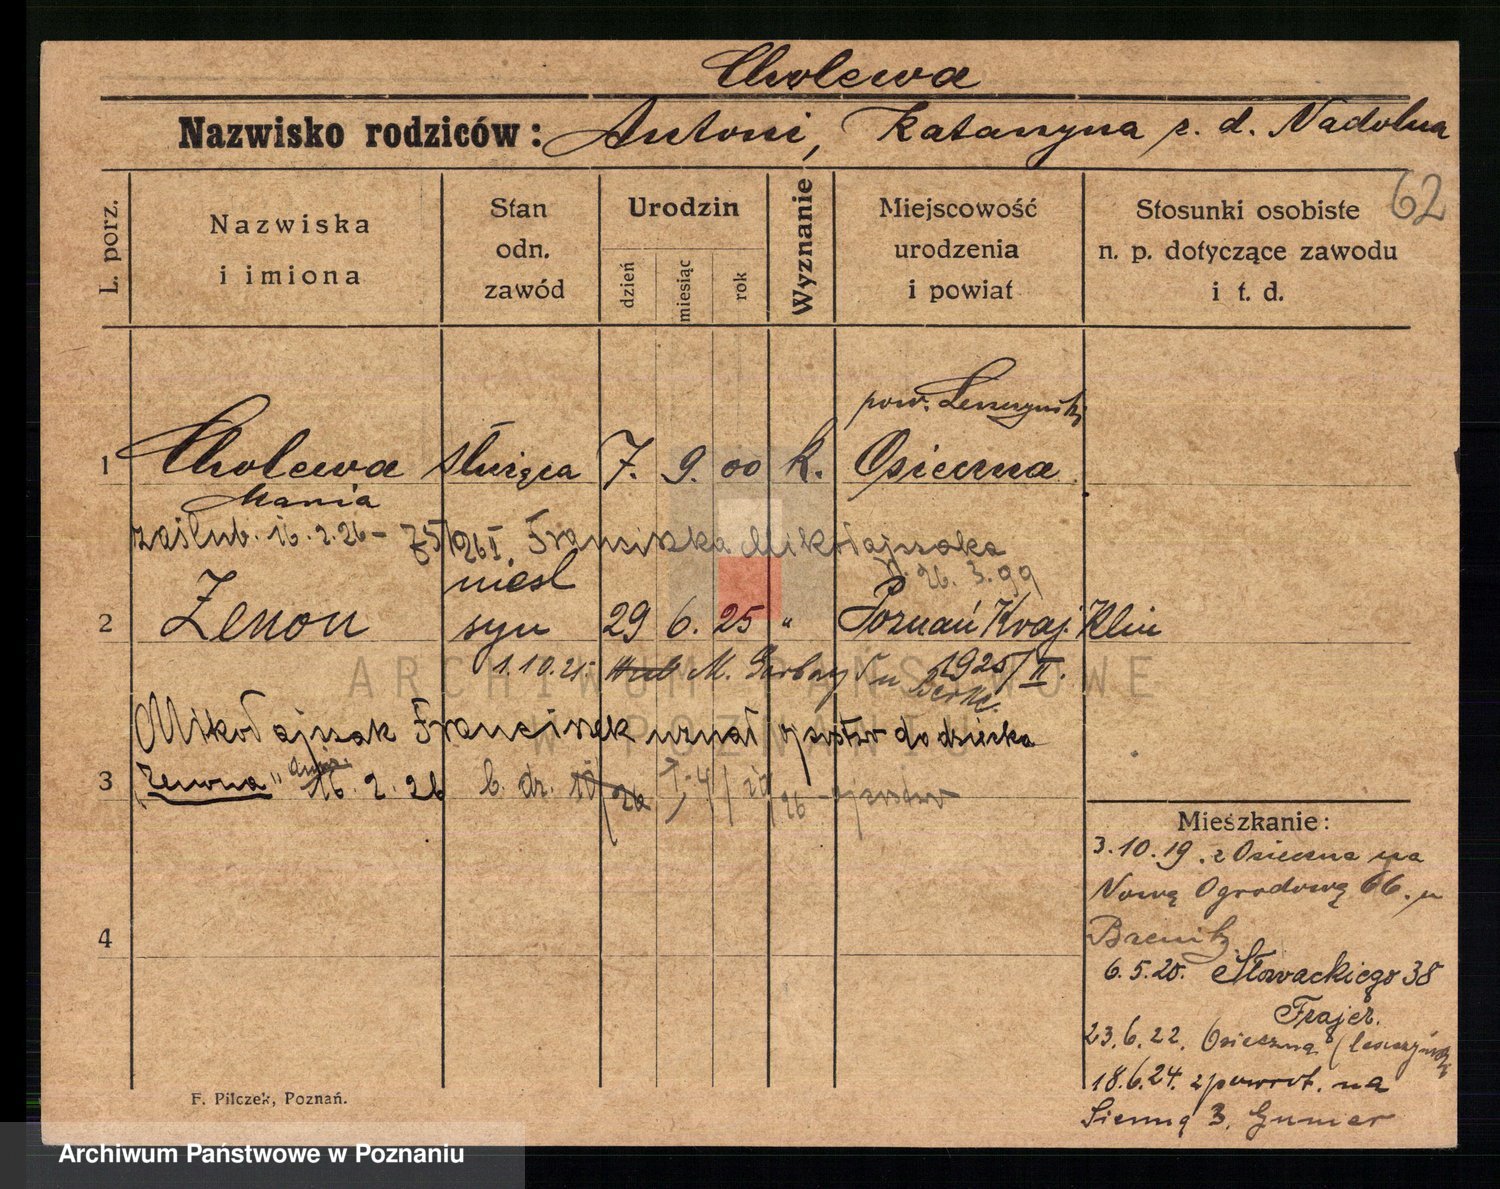 Cholewa
Nazwisko rodziców: Antoni, Katarzyna z. d. Nadolna
62
L. porz.
Nazwiska i imiona
Stan odn. zawód
Urodzin
dzień
miesiąc
rok
Wyznanie
Miejscowość urodzenia i powiat
Stosunki osobiste n. p. dotyczące zawodu i t. d.
pow. Leszczyński
1 Cholewa służąca 7. 9. 00 k. Osieczna
Mania
zaślub. 16.2.26 - 75/26 I. Franciszka Mikołajczaka
26. 3. 99
nieśl
2 Zenon syn 29 6. 25 " Poznań Kraj. Klin
1.10.25. M. Garbary 1925/II.
Mikołajczak Franciszek uznał ojcostwo do dziecka
3 "Zenona" dnia 16. 2. 26
ojcostwo
4
Mieszkanie:
3.10.19. z Osieczna na
Nową Ogrodową 66. u
6.5.20. Słowackiego 38
Frajer.
23.6.22. Osieczna (leszczyński
18.6.24. zpowrot. na
Sienną 3.
F. Pilczek, Poznań.
ARCHIWUM PAŃSTWOWE
W POZNANIU
Archiwum Państwowe w Poznaniu